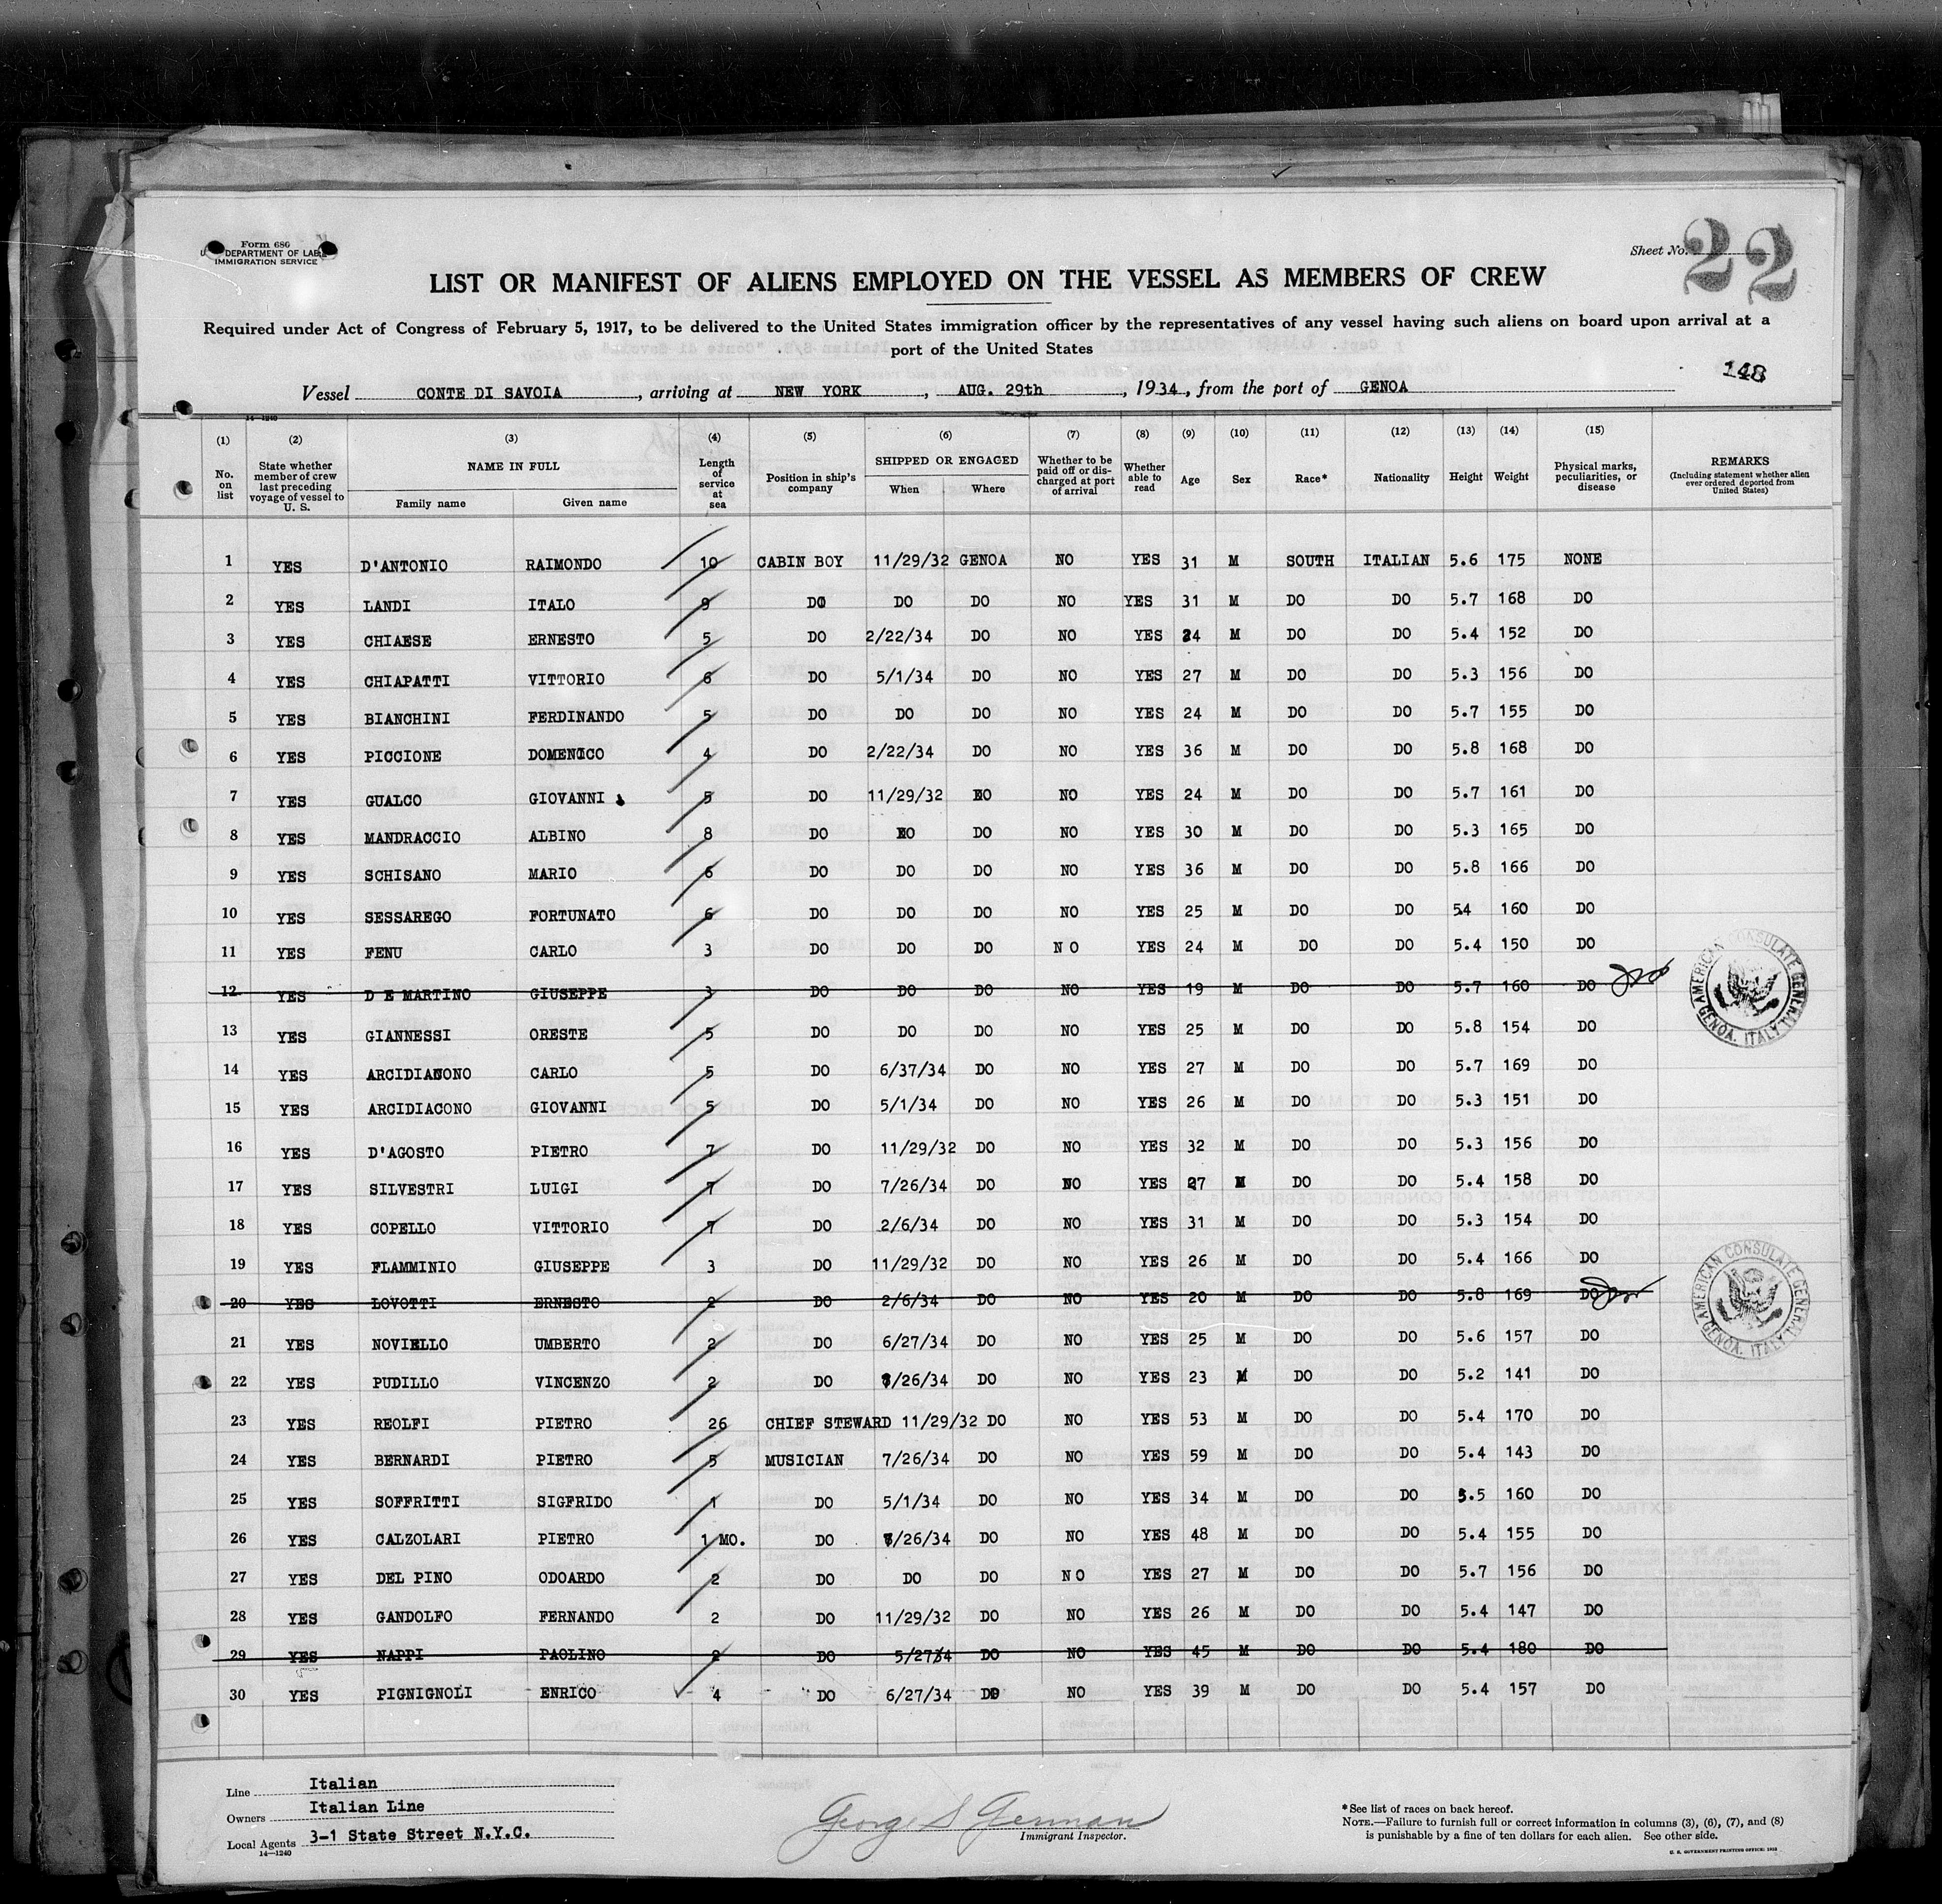 Form 680
DEPARTMENT OF LABOR
IMMIGRATION SERVICE
Sheet No. 22
LIST OR MANIFEST OF ALIENS EMPLOYED ON THE VESSEL AS MEMBERS OF CREW
Required under Act of Congress of February 5, 1917, to be delivered to the United States immigration officer by the representatives of any vessel having such aliens on board upon arrival at a
port of the United States
148
Vessel CONTE DI SAVOIA, arriving at NEW YORK, AUG. 29th, 1934, from the port of GENOA
14—1240
(1) No. on list (2) State whether member of crew last preceding voyage of vessel to U. S. (3) NAME IN FULL Family name Given name (4) Length of service at sea (5) Position in ship's company (6) SHIPPED OR ENGAGED When Where (7) Whether to be paid off or discharged at port of arrival (8) Whether able to read (9) Age (10) Sex (11) Race* (12) Nationality (13) Height (14) Weight (15) Physical marks, peculiarities, or disease REMARKS (Including statement whether alien ever ordered deported from United States)
1 YES D'ANTONIO RAIMONDO 10 CABIN BOY 11/29/32 GENOA NO YES 31 M SOUTH ITALIAN 5.6 175 NONE
2 YES LANDI ITALO 9 DO DO DO NO YES 31 M DO DO 5.7 168 DO
3 YES CHIAESE ERNESTO 5 DO 2/22/34 DO NO YES 24 M DO DO 5.4 152 DO
4 YES CHIAPATTI VITTORIO 6 DO 5/1/34 DO NO YES 27 M DO DO 5.3 156 DO
5 YES BIANCHINI FERDINANDO 5 DO DO DO NO YES 24 M DO DO 5.7 155 DO
6 YES PICCIONE DOMENICO 4 DO 2/22/34 DO NO YES 36 M DO DO 5.8 168 DO
7 YES GUALCO GIOVANNI 5 DO 11/29/32 DO NO YES 24 M DO DO 5.7 161 DO
8 YES MANDRACCIO ALBINO 8 DO DO DO NO YES 30 M DO DO 5.3 165 DO
9 YES SCHISANO MARIO 6 DO DO DO NO YES 36 M DO DO 5.8 166 DO
10 YES SESSAREGO FORTUNATO 6 DO DO DO NO YES 25 M DO DO 54 160 DO
11 YES FENU CARLO 3 DO DO DO N O YES 24 M DO DO 5.4 150 DO
12 YES D E MARTINO GIUSEPPE 3 DO DO DO NO YES 19 M DO DO 5.7 160 DO
AMERICAN CONSULATE GENERAL GENOA, ITALY
13 YES GIANNESSI ORESTE 5 DO DO DO NO YES 25 M DO DO 5.8 154 DO
14 YES ARCIDIACONO CARLO 5 DO 6/37/34 DO NO YES 27 M DO DO 5.7 169 DO
15 YES ARCIDIACONO GIOVANNI 5 DO 5/1/34 DO NO YES 26 M DO DO 5.3 151 DO
16 YES D'AGOSTO PIETRO 7 DO 11/29/32 DO NO YES 32 M DO DO 5.3 156 DO
17 YES SILVESTRI LUIGI 7 DO 7/26/34 DO NO YES 27 M DO DO 5.4 158 DO
18 YES COPELLO VITTORIO 7 DO 2/6/34 DO NO YES 31 M DO DO 5.3 154 DO
19 YES FLAMMINIO GIUSEPPE 3 DO 11/29/32 DO NO YES 26 M DO DO 5.4 166 DO
20 YES LOVOTTI ERNESTO 2 DO 2/6/34 DO NO YES 20 M DO DO 5.8 169 DO
AMERICAN CONSULATE GENERAL GENOA, ITALY
21 YES NOVIELLO UMBERTO 2 DO 6/27/34 DO NO YES 25 M DO DO 5.6 157 DO
22 YES PUDILLO VINCENZO 2 DO 7/26/34 DO NO YES 23 M DO DO 5.2 141 DO
23 YES REOLFI PIETRO 26 CHIEF STEWARD 11/29/32 DO NO YES 53 M DO DO 5.4 170 DO
24 YES BERNARDI PIETRO 5 MUSICIAN 7/26/34 DO NO YES 59 M DO DO 5.4 143 DO
25 YES SOFFRITTI SIGFRIDO 1 DO 5/1/34 DO NO YES 34 M DO DO 5.5 160 DO
26 YES CALZOLARI PIETRO 1 MO. DO 7/26/34 DO NO YES 48 M DO DO 5.4 155 DO
27 YES DEL PINO ODOARDO 2 DO DO DO N O YES 27 M DO DO 5.7 156 DO
28 YES GANDOLFO FERNANDO 2 DO 11/29/32 DO NO YES 26 M DO DO 5.4 147 DO
29 YES NAPPI PAOLINO 2 DO 5/27/34 DO NO YES 45 M DO DO 5.4 180 DO
30 YES PIGNIGNOLI ENRICO 4 DO 6/27/34 DO NO YES 39 M DO DO 5.4 157 DO
Line Italian
Owners Italian Line
Local Agents 3-1 State Street N.Y.C.
14—1240
George S German
Immigrant Inspector.
*See list of races on back hereof.
NOTE.—Failure to furnish full or correct information in columns (3), (6), (7), and (8)
is punishable by a fine of ten dollars for each alien. See other side.
U. S. GOVERNMENT PRINTING OFFICE: